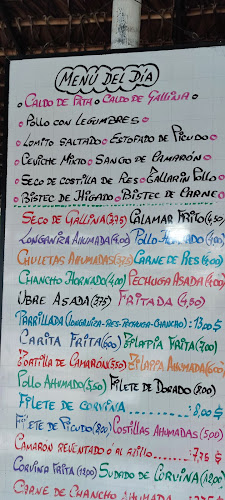 MENÚ DEL DÍA
CALDO DE PATA CALDO DE GALLINA
POLLO CON LEGUMBRES
LOMITO SALTADO ESTOFADO DE PICUDO
CEVICHE MIXTO SANGO DE CAMARÓN
SECO DE COSTILLA DE RES TALLARIN POLLO
BISTEC DE HIGADO BISTEC DE CARNE
SECO DE GALLINA (3,75) CALAMAR FRITO (4,50)
LONGANIZA AHUMADA (4,00) POLLO HORNADO (4,00)
CHULETAS AHUMADAS (3,75) CARNE DE RES (4,00)
CHANCHO HORNADO (4,00) PECHUGA ASADA (4,00)
UBRE ASADA (3,75) FRITADA (4,50)
PARRILLADA (LONGANIZA-RES-PECHUGA-CHANCHO): 13,00 $
CARITA FRITA (6,00) TILAPIA FRITA (7,00)
TORTILLA DE CAMARÓN (5,50) TILAPIA AHUMADA (6,00)
POLLO AHUMADO (5,50) FILETE DE DORADO (8,00)
FILETE DE CORVINA ........: 8,00 $
FILETE DE PICUDO (8,00) COSTILLAS AHUMADAS (5,00)
CAMARON REVENTADO O AL AJILLO ....: 7,75 $
CORVINA FRITA (12,00) SUDADO DE CORVINA (12,00)
CARNE DE CHANCHO AHUMADA